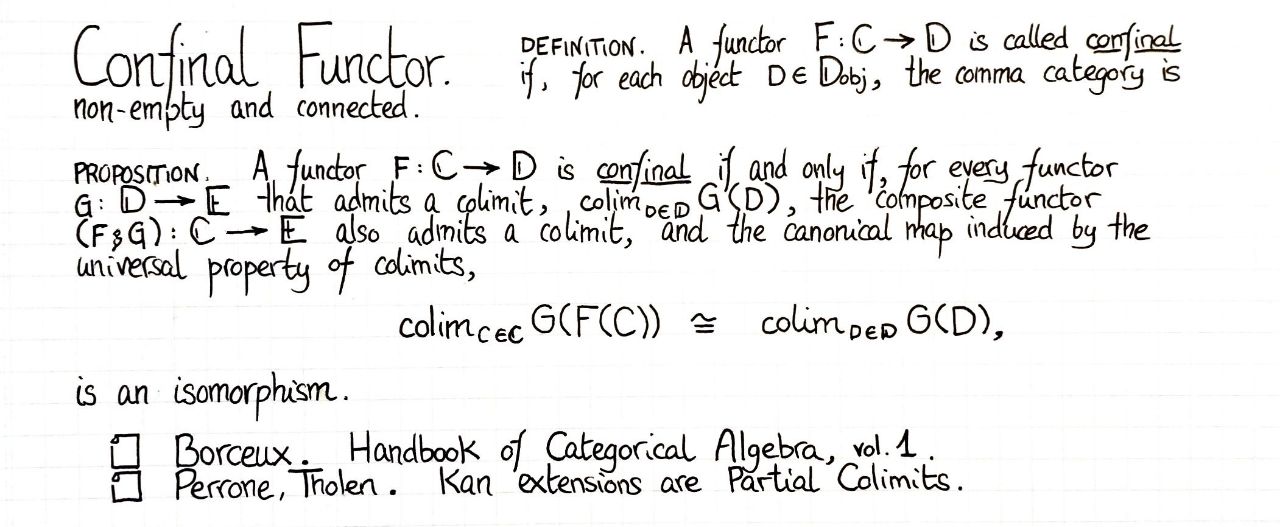 Confinal Functor. DEFINITION. A functor F : ℂ → 𝔻 is called confinal
if, for each object D ∈ 𝔻obj, the comma category is
non-empty and connected.
PROPOSITION. A functor F : ℂ → 𝔻 is confinal if and only if, for every functor
G : 𝔻 → 𝔼 that admits a colimit, colim_{D∈𝔻} G(D), the composite functor
(F⨟G) : ℂ → 𝔼 also admits a colimit, and the canonical map induced by the
universal property of colimits,
colim_{C∈ℂ} G(F(C)) ≅ colim_{D∈𝔻} G(D),
is an isomorphism.
Borceux. Handbook of Categorical Algebra, vol. 1.
Perrone, Tholen. Kan extensions are Partial Colimits.